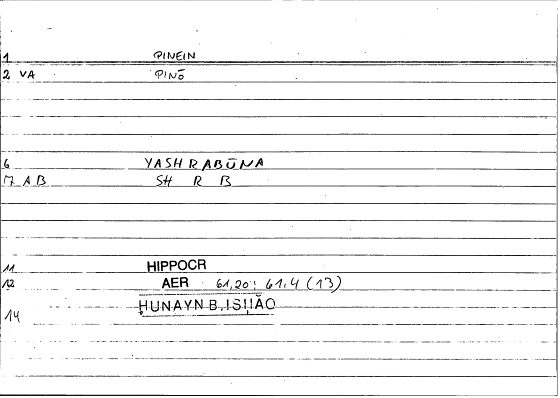 1 PINEIN
2 VA PINŌ
6 YASHRABŪNA
7 AB SH R B
11 HIPPOCR
12 AER 61,20: 61,4 (13)
14 ḤUNAYN B. ISḤĀQ